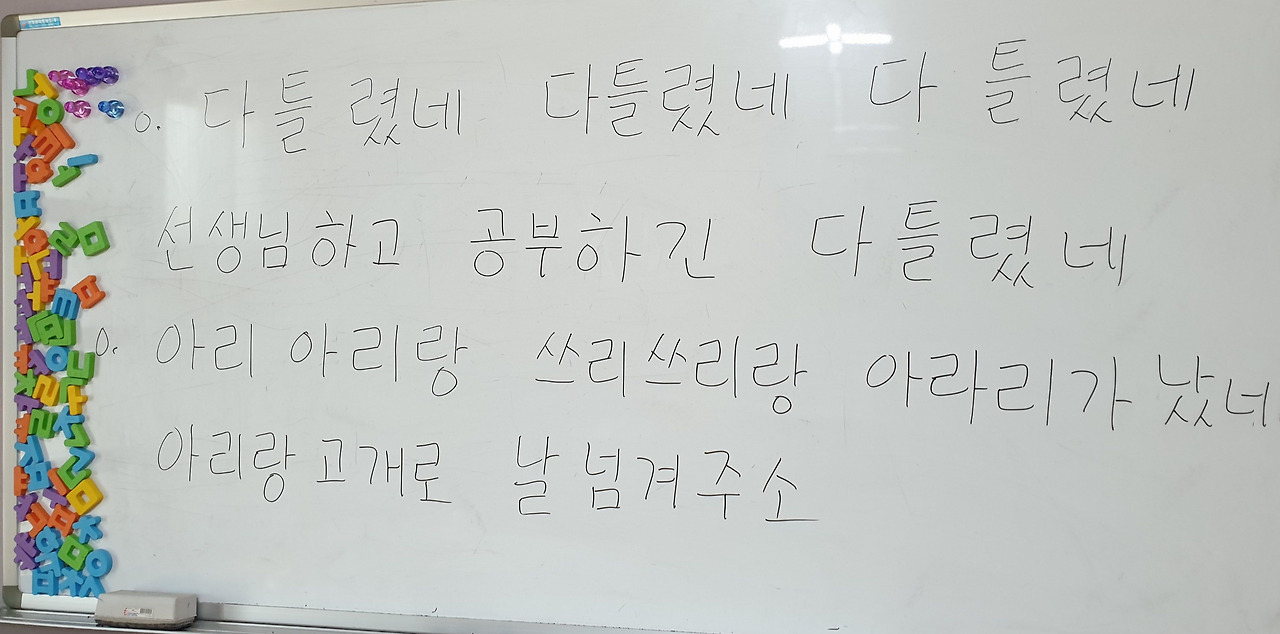 o. 다 틀 렸네 다틀렸네 다 틀 렸네
선생님하고 공부하긴 다 틀 렸 네
o. 아리 아리랑 쓰리쓰리랑 아라리가 났네
아리랑고개로 날 넘겨주소